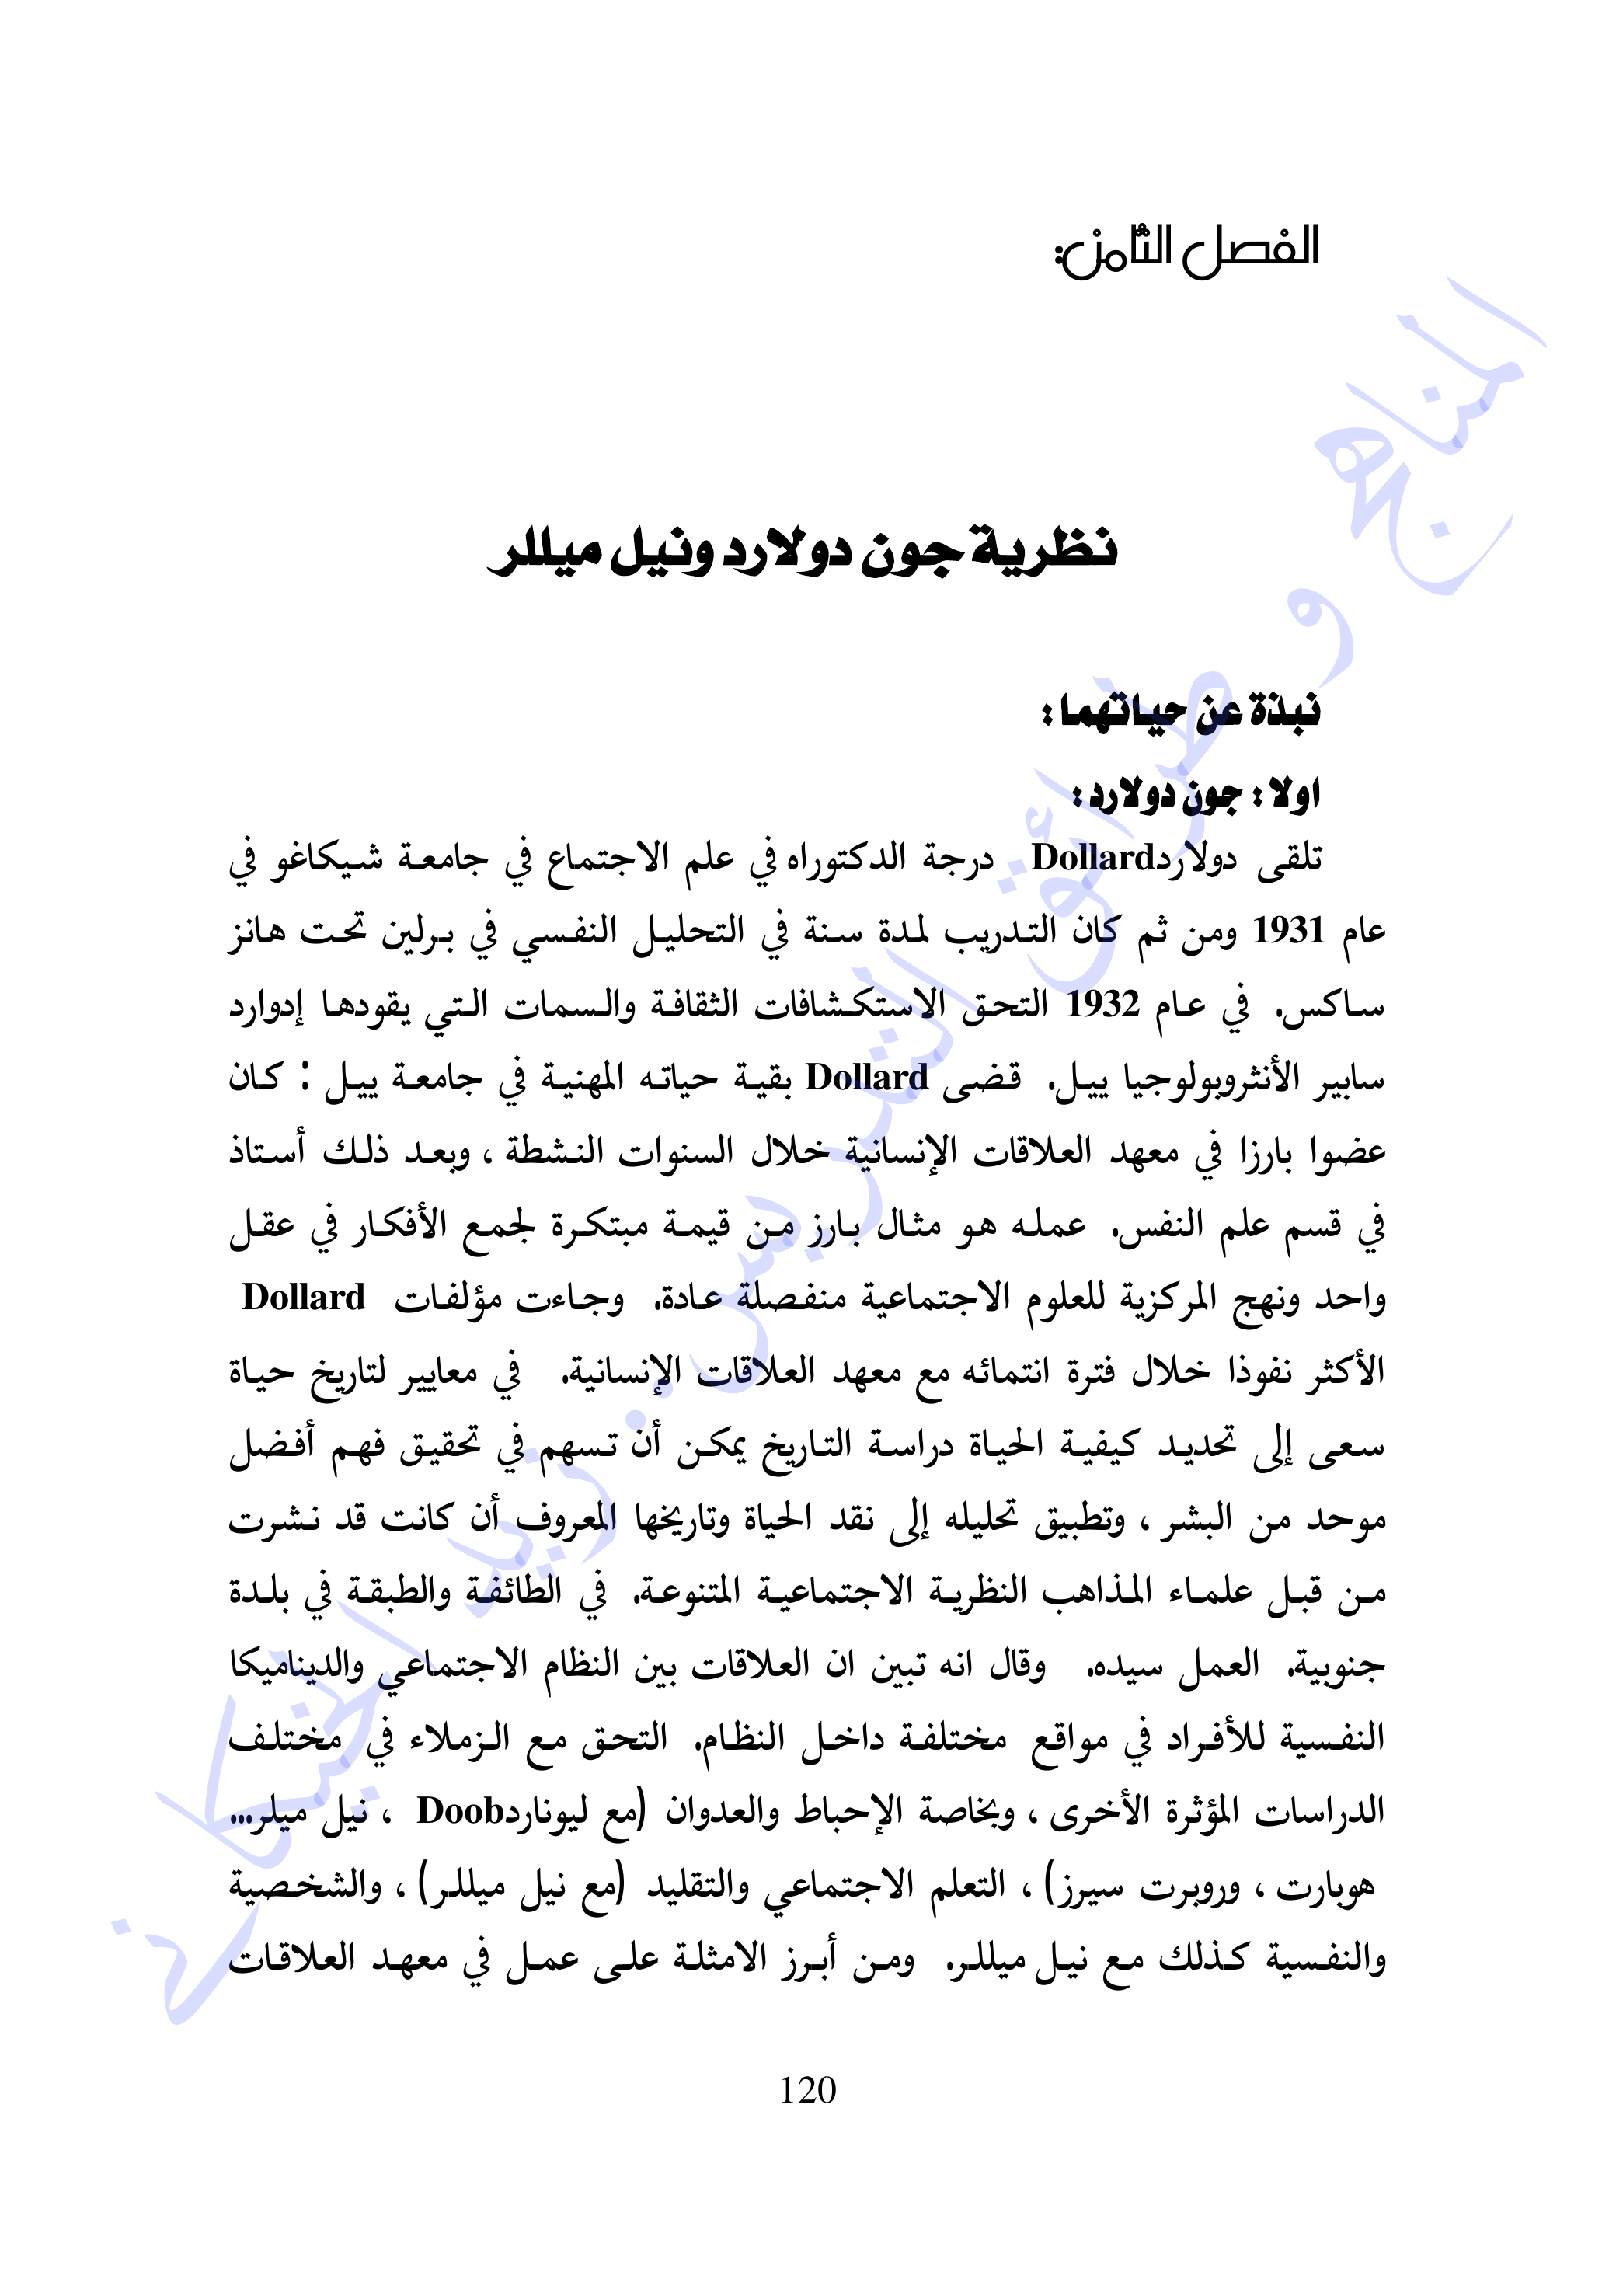 الفصل الثامن:
نظرية جون دولارد ونيل ميللر
نبذة عن حياتهما :
اولا : جون دولارد :
تلقى دولاردDollard درجة الدكتوراه في علم الاجتماع في جامعة شيكاغو في
عام 1931 ومن ثم كان التدريب لمدة سنة في التحليل النفسي في برلين تحت هانز
ساكس. في عام 1932 التحق الاستكشافات الثقافة والسمات التي يقودها إدوارد
سابير الأنثروبولوجيا ييل. قضى Dollard بقية حياته المهنية في جامعة ييل : كان
عضوا بارزا في معهد العلاقات الإنسانية خلال السنوات النشطة ، وبعد ذلك أستاذ
في قسم علم النفس. عمله هو مثال بارز من قيمة مبتكرة لجمع الأفكار في عقل
واحد ونهج المركزية للعلوم الاجتماعية منفصلة عادة. وجاءت مؤلفات Dollard
الأكثر نفوذا خلال فترة انتمائه مع معهد العلاقات الإنسانية. في معايير لتاريخ حياة
سعى إلى تحديد كيفية الحياة دراسة التاريخ يمكن أن تسهم في تحقيق فهم أفضل
موحد من البشر ، وتطبيق تحليله إلى نقد الحياة وتاريخها المعروف أن كانت قد نشرت
من قبل علماء المذاهب النظرية الاجتماعية المتنوعة. في الطائفة والطبقة في بلدة
جنوبية. العمل سيده. وقال انه تبين ان العلاقات بين النظام الاجتماعي والديناميكا
النفسية للأفراد في مواقع مختلفة داخل النظام. التحق مع الزملاء في مختلف
الدراسات المؤثرة الأخرى ، وبخاصة الإحباط والعدوان (مع ليوناردDoob ، نيل ميلر...
هوبارت ، وروبرت سيرز) ، التعلم الاجتماعي والتقليد (مع نيل ميللر) ، والشخصية
والنفسية كذلك مع نيل ميللر. ومن أبرز الامثلة على عمل في معهد العلاقات
120
المناهج و طرائق التدريس. زيد الخيكاني